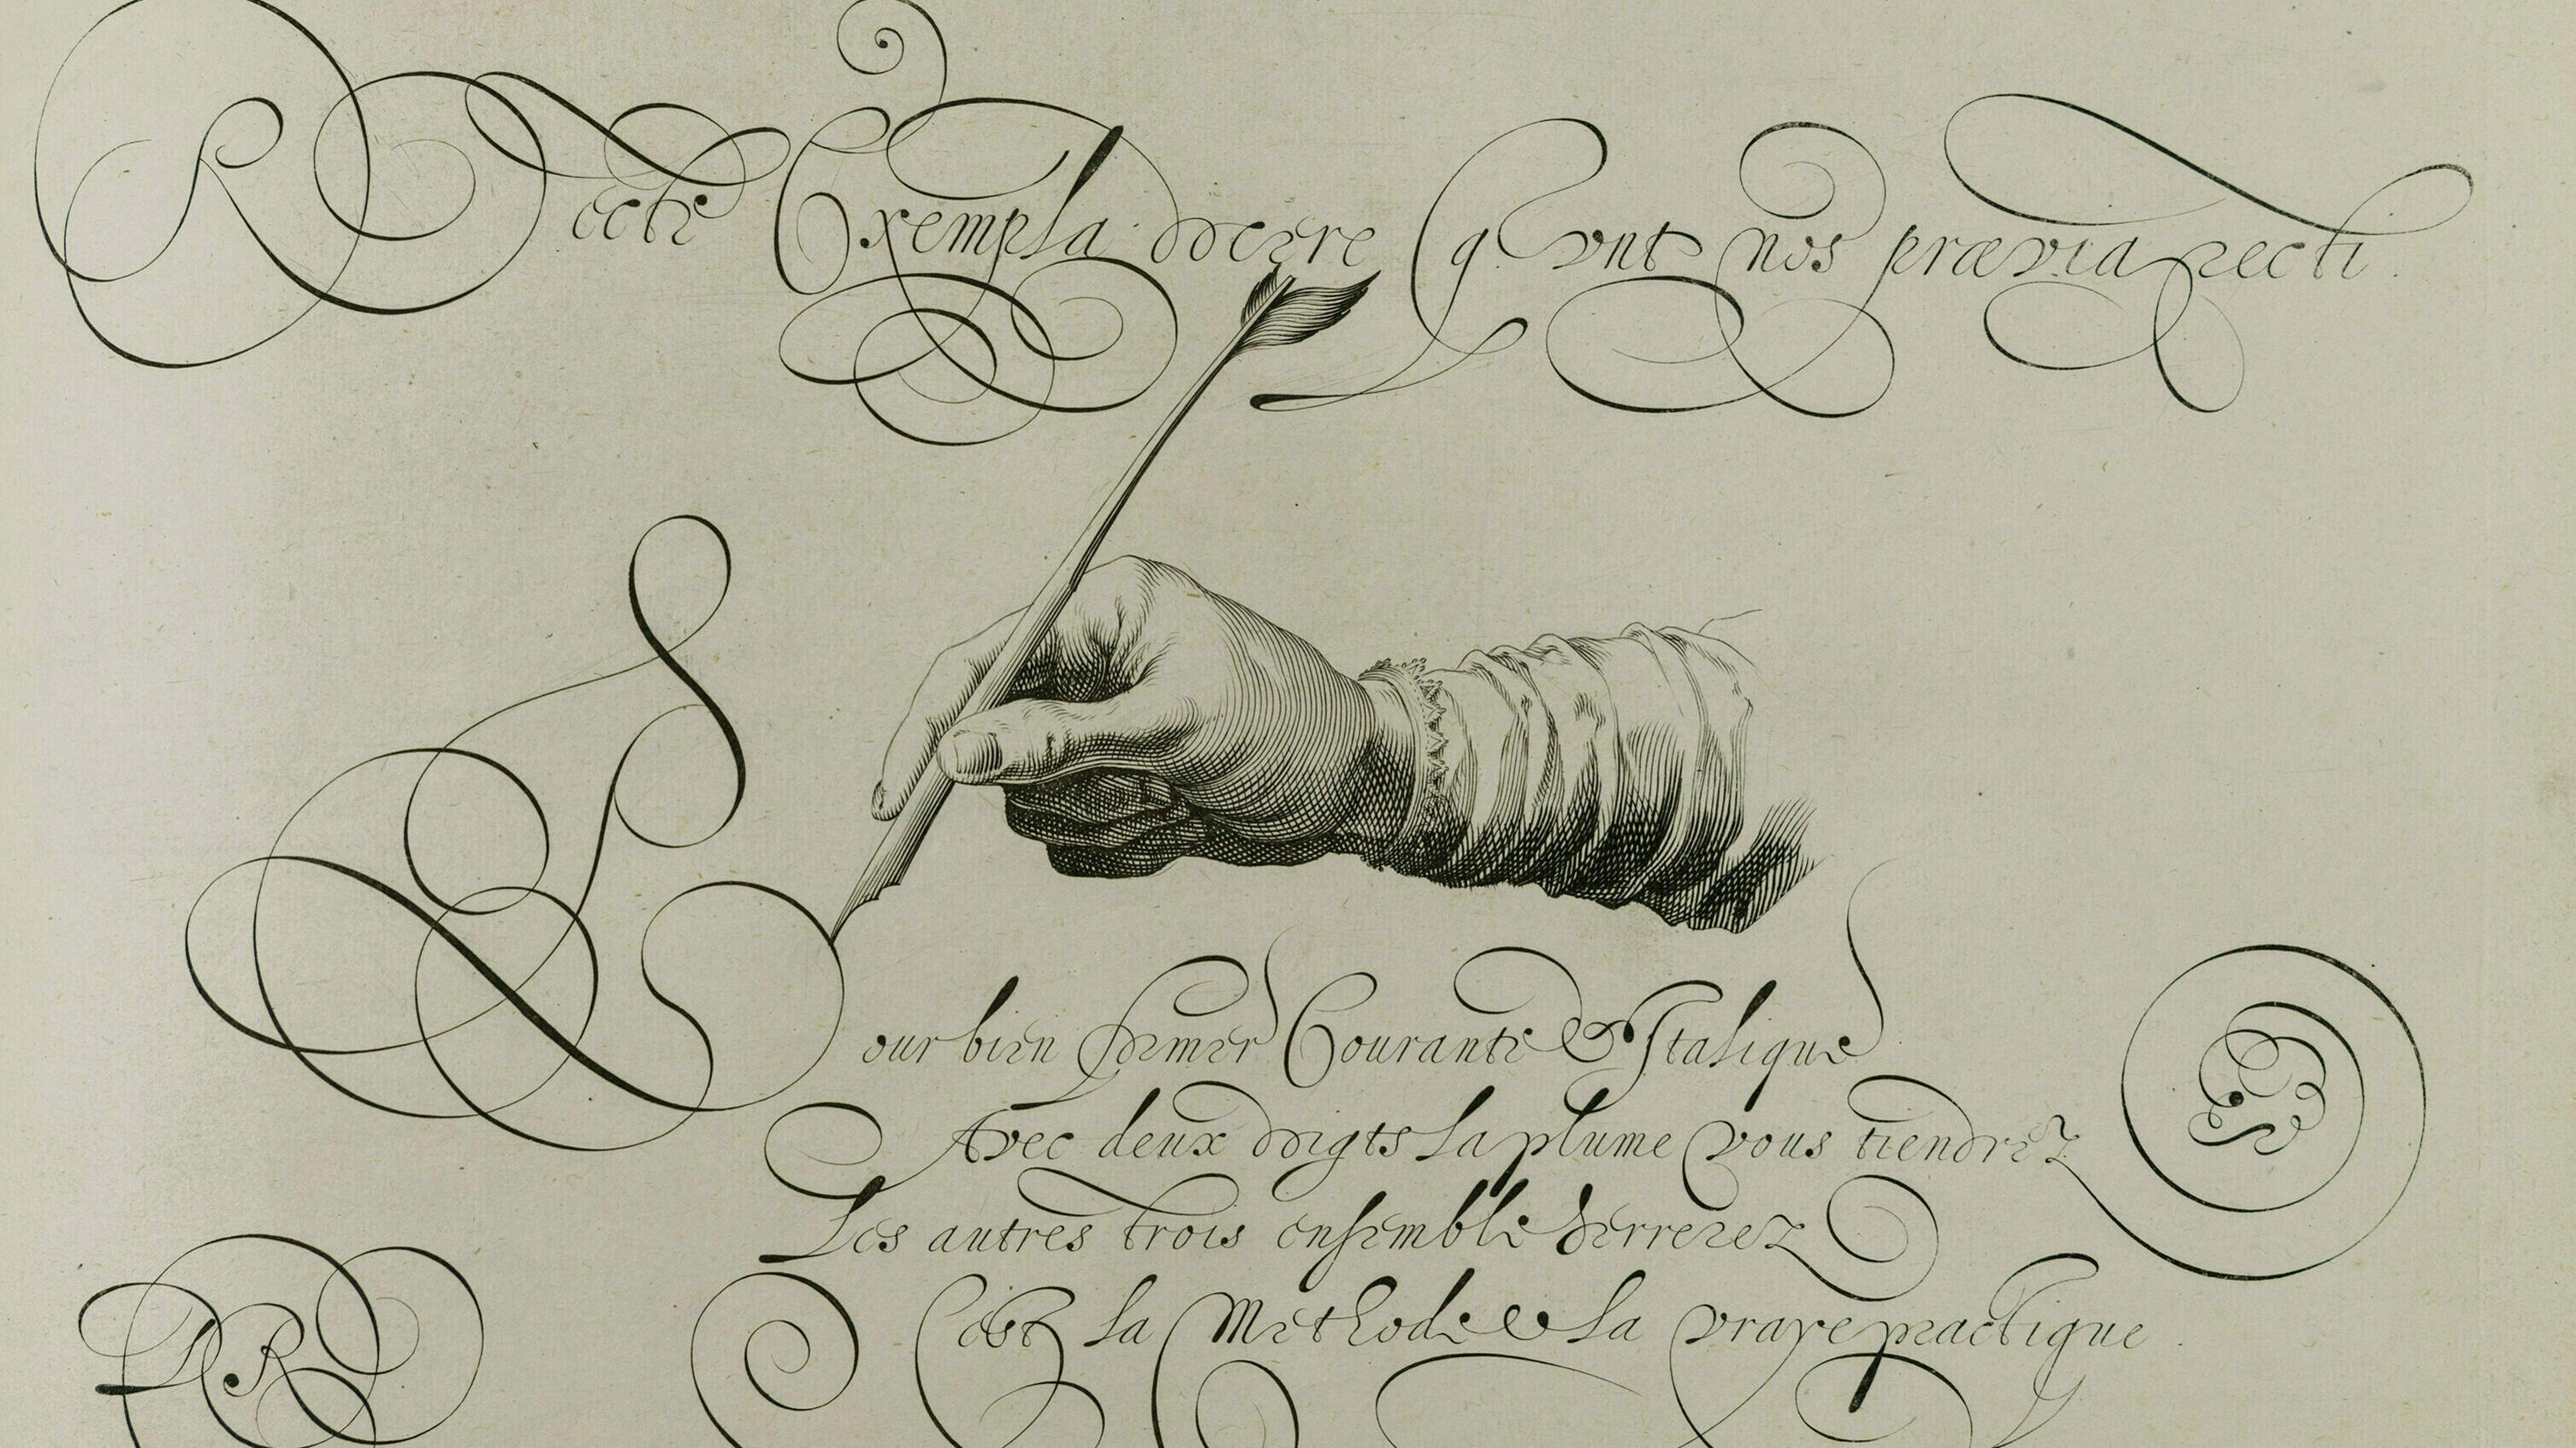 Recte Exempla docere queunt nos prævia recti.
Pour bien former Courante & Italique
Avec deux doigts la plume vous tiendrez
Les autres trois ensemble serrerez
C'est la Methode & la vraye practique.